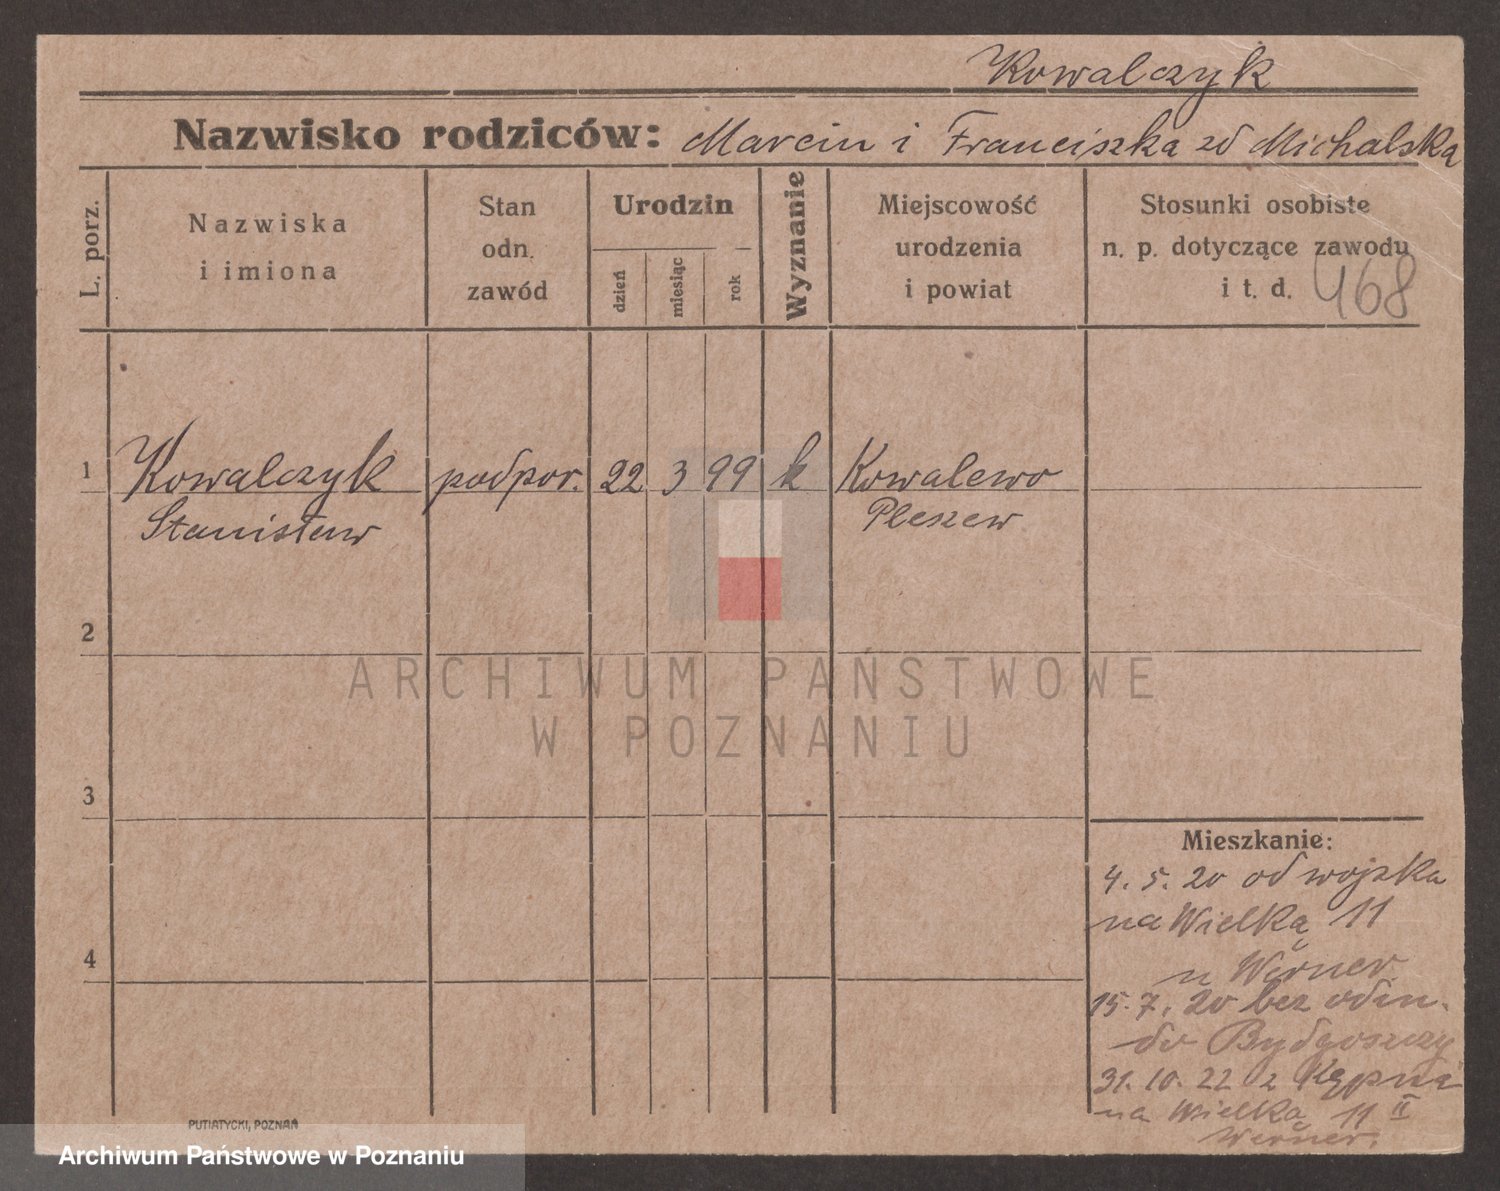 Kowalczyk
Nazwisko rodziców: Marcin i Franciszka zd Michalska
L. porz.
Nazwiska
i imiona
Stan
odn.
zawód
Urodzin
dzień
miesiąc
rok
Wyznanie
Miejscowość
urodzenia
i powiat
Stosunki osobiste
n. p. dotyczące zawodu
i t. d.
468
1 Kowalczyk podpor. 22 3 99 k Kowalewo
Stanisław Pleszew
2
ARCHIWUM PAŃSTWOWE
W POZNANIU
3
Mieszkanie:
4. 5. 20 od wojska
na Wielką 11
4
u Werner
15. 7. 20 bez odm.
do Bydgoszczy
31. 10. 22 z Kępna
na Wielką 11 II
Werner.
PUTIATYCKI, POZNAŃ
Archiwum Państwowe w Poznaniu